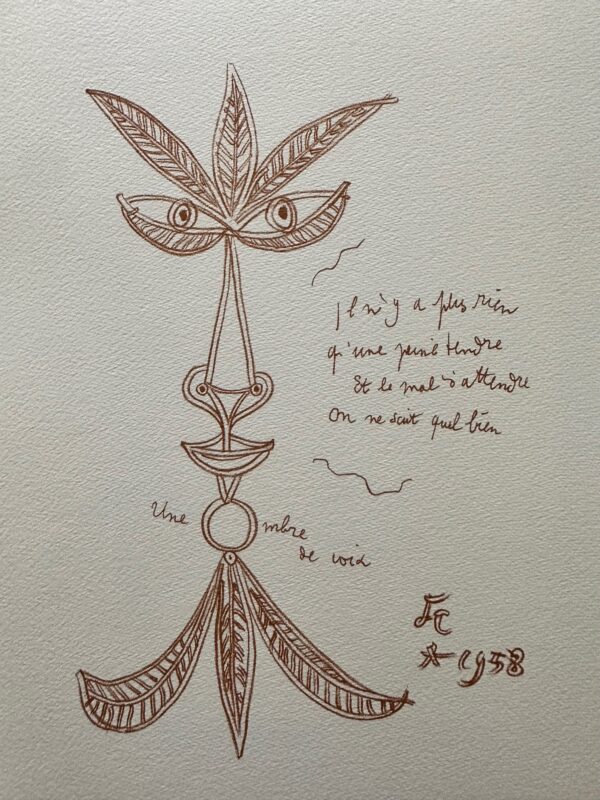 Il n'y a plus rien
qu'une peine tendre
Et le mal d'attendre
On ne sait quel bien
Une ombre
de voix
JC
* 1958